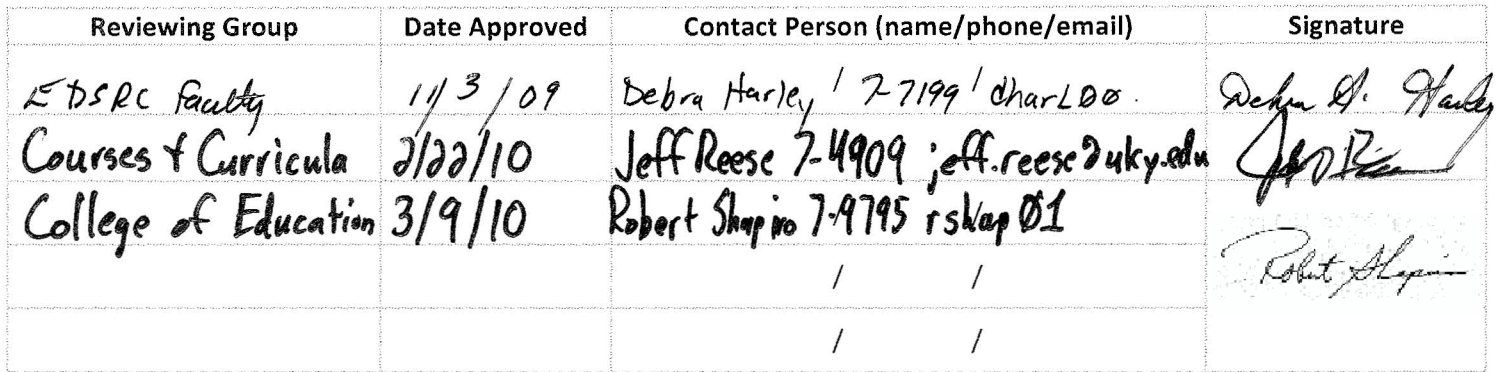 Reviewing Group Date Approved Contact Person (name/phone/email) Signature
EDSRC Faculty 11/3/09 Debra Harley / 7-7199 / dharL00. Debra A. Harley
Courses & Curricula 2/22/10 Jeff Reese 7-4909 jeff.reese@uky.edu
College of Education 3/9/10 Robert Shapiro 7-9795 rshap01 Robert Shapiro
/ /
/ /